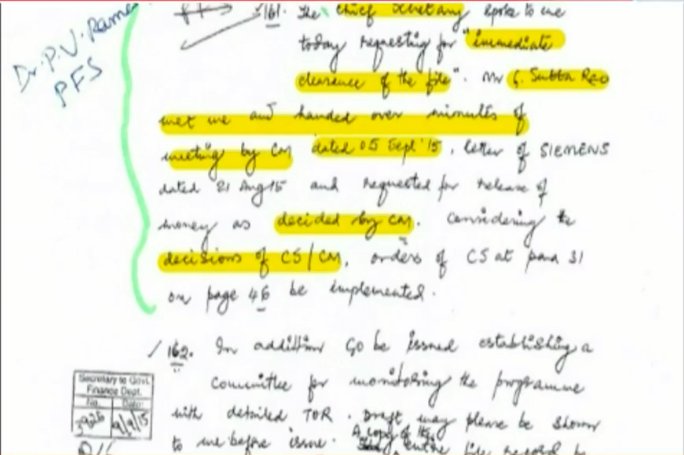 Dr. P. V. Rame
PFS
161. The Chief Secretary spoke to me
today requesting for "immediate
clearance of the file". Mr G. Subba Rao
met me and handed over minutes of
meeting by CM dated 05 Sept '15, letter of SIEMENS
dated 21 Aug 15 and requested for release of
money as decided by CM. Considering the
decisions of CS/CM, orders of CS at para 31
on page 46 be implemented.
162. In addition GO be issued establishing a
Committee for monitoring the programme
with detailed TOR. Draft may please be shown
to me before issue. A copy of the entire file record be
Secretary to Govt.
Finance Dept.
No. Date:
3925 9/9/15